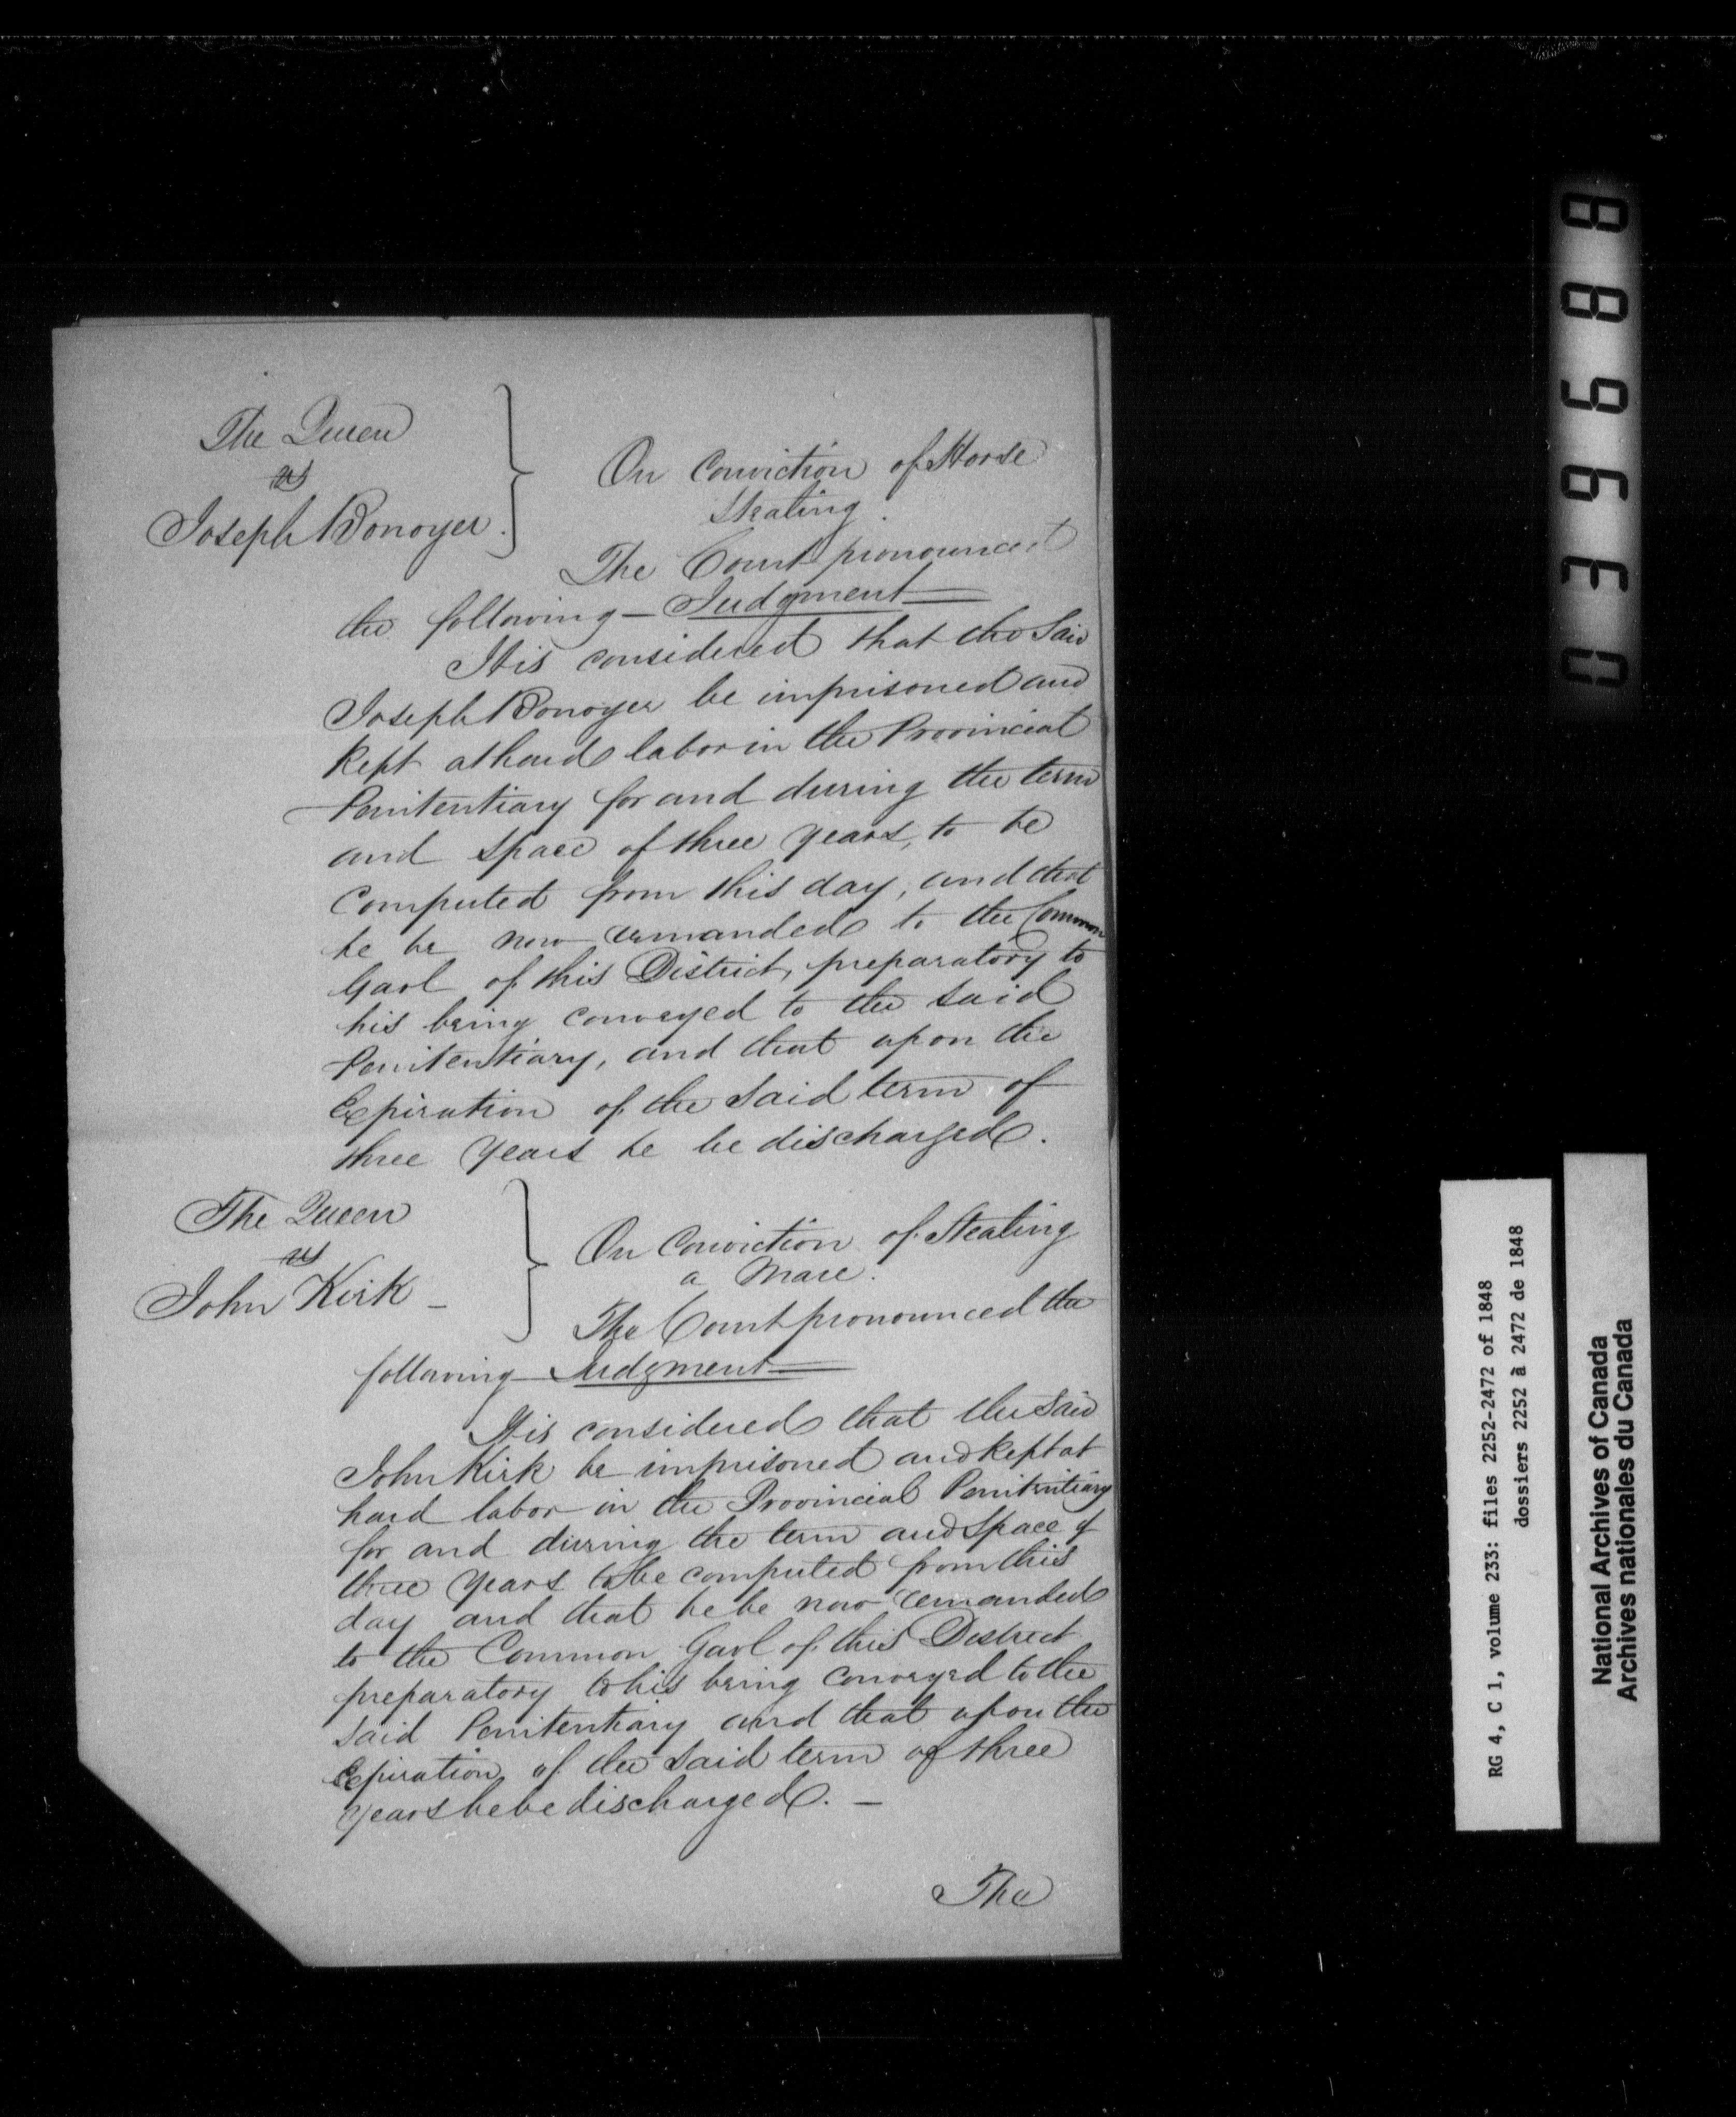 The Queen
vs
Joseph Bonoyer.
On Conviction of Horse
Stealing.
The Court pronounced
the following - Judgment
It is considered that the Said
Joseph Bonoyer be imprisoned and
Kept at hard labor in the Provincial
Penitentiary for and during the term
and Space of three years, to be
Computed from this day, and that
he be now remanded to the Common
Gaol of this District, preparatory to
his being conveyed to the said
Penitentiary, and that upon the
Expiration of the Said term of
three years he be discharged.
The Queen
vs
John Kirk -
On Conviction of Stealing
a Mare.
The Court pronounced the
following Judgment
It is considered that the Said
John Kirk be imprisoned and Kept at
hard labor in the Provincial Penitentiary
for and during the term and Space of
three years to be computed from this
day and that he be now remanded
to the Common Gaol of this District
preparatory to his being conveyed to the
said Penitentiary and that upon the
Expiration of the Said term of three
years he be discharged. -
The
039688
RG 4, C 1, volume 233: files 2252-2472 of 1848
dossiers 2252 à 2472 de 1848
National Archives of Canada
Archives nationales du Canada